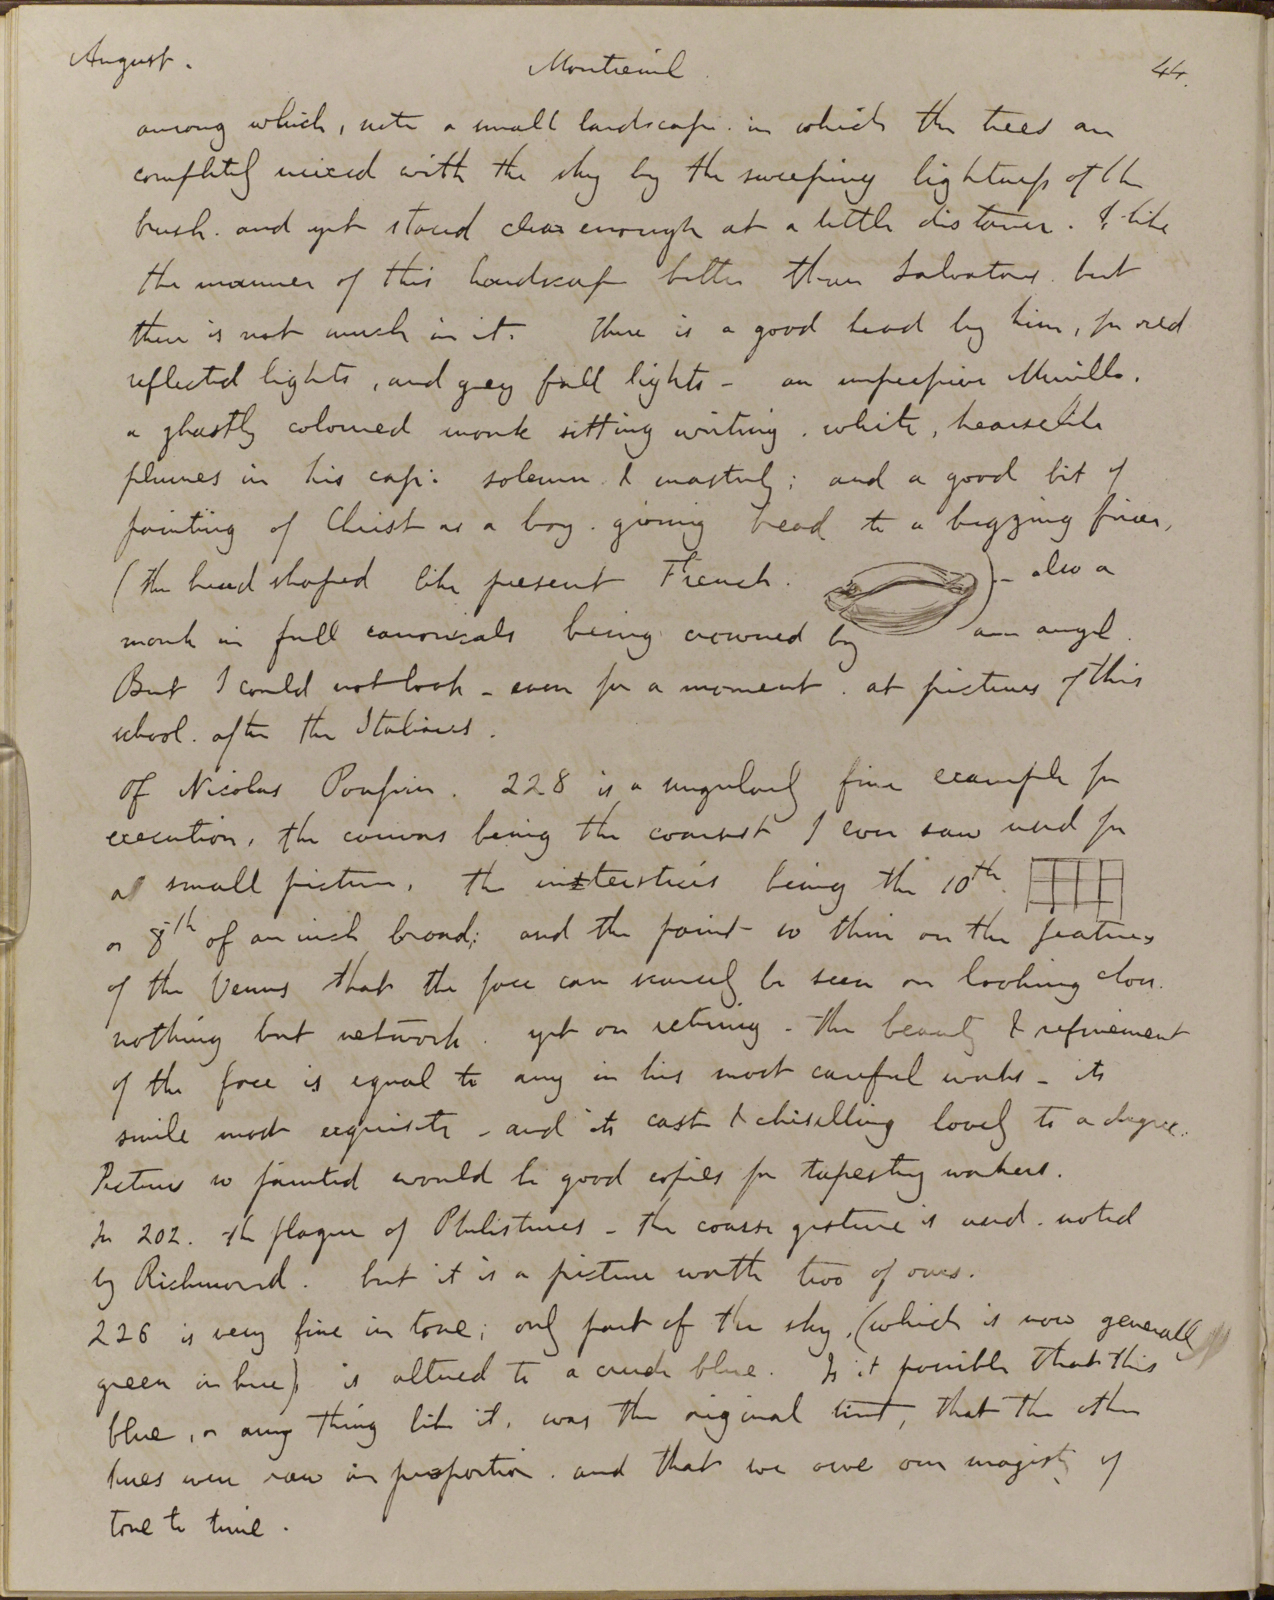 August.
Montreuil.
44.
among which, note a small landscape. in which the trees are
completely mixed with the sky by the sweeping lightness of the
brush. and yet stand clear enough at a little distance. I like
the manner of this landscape better than Salvators. but
there is not much in it. There is a good head by him, for red
reflected lights, and grey full lights - an impressive Murillo.
a ghastly coloured monk sitting writing. white, hearselike
plumes in his cap: solemn & masterly; and a good bit of
painting of Christ as a boy. giving bread to a begging friar,
(the bread shaped like present French. ) - also a
monk in full canonicals being crowned by an angel.
But I could not look - even for a moment. at pictures of this
school. after the Italians.
Of Nicolas Poussin. 228 is a singularly fine example for
execution, the canvas being the coarsest I ever saw used for
a small picture. the intersticis being the 10th.
or 8th of an inch broad; and the paint so thin on the features
of the Venus that the face can scarcely be seen on looking close.
nothing but network. yet on retiring - the beauty & refinement
of the face is equal to any in his most careful works - its
smile most exquisite - and its cast & chiselling lovely to a degree.
Pictures so painted would be good copies for tapestry workers.
In 202. the plague of Philistines - the coarse gesture is used. noted
by Richmond. but it is a picture worth two of ours.
226 is very fine in tone; only part of the sky, (which is now generally
green in hue) is altered to a crude blue. Is it possible that this
blue, or any thing like it, was the original tint, that the other
hues were raw in proportion. and that we owe our majesty of
tone to time.